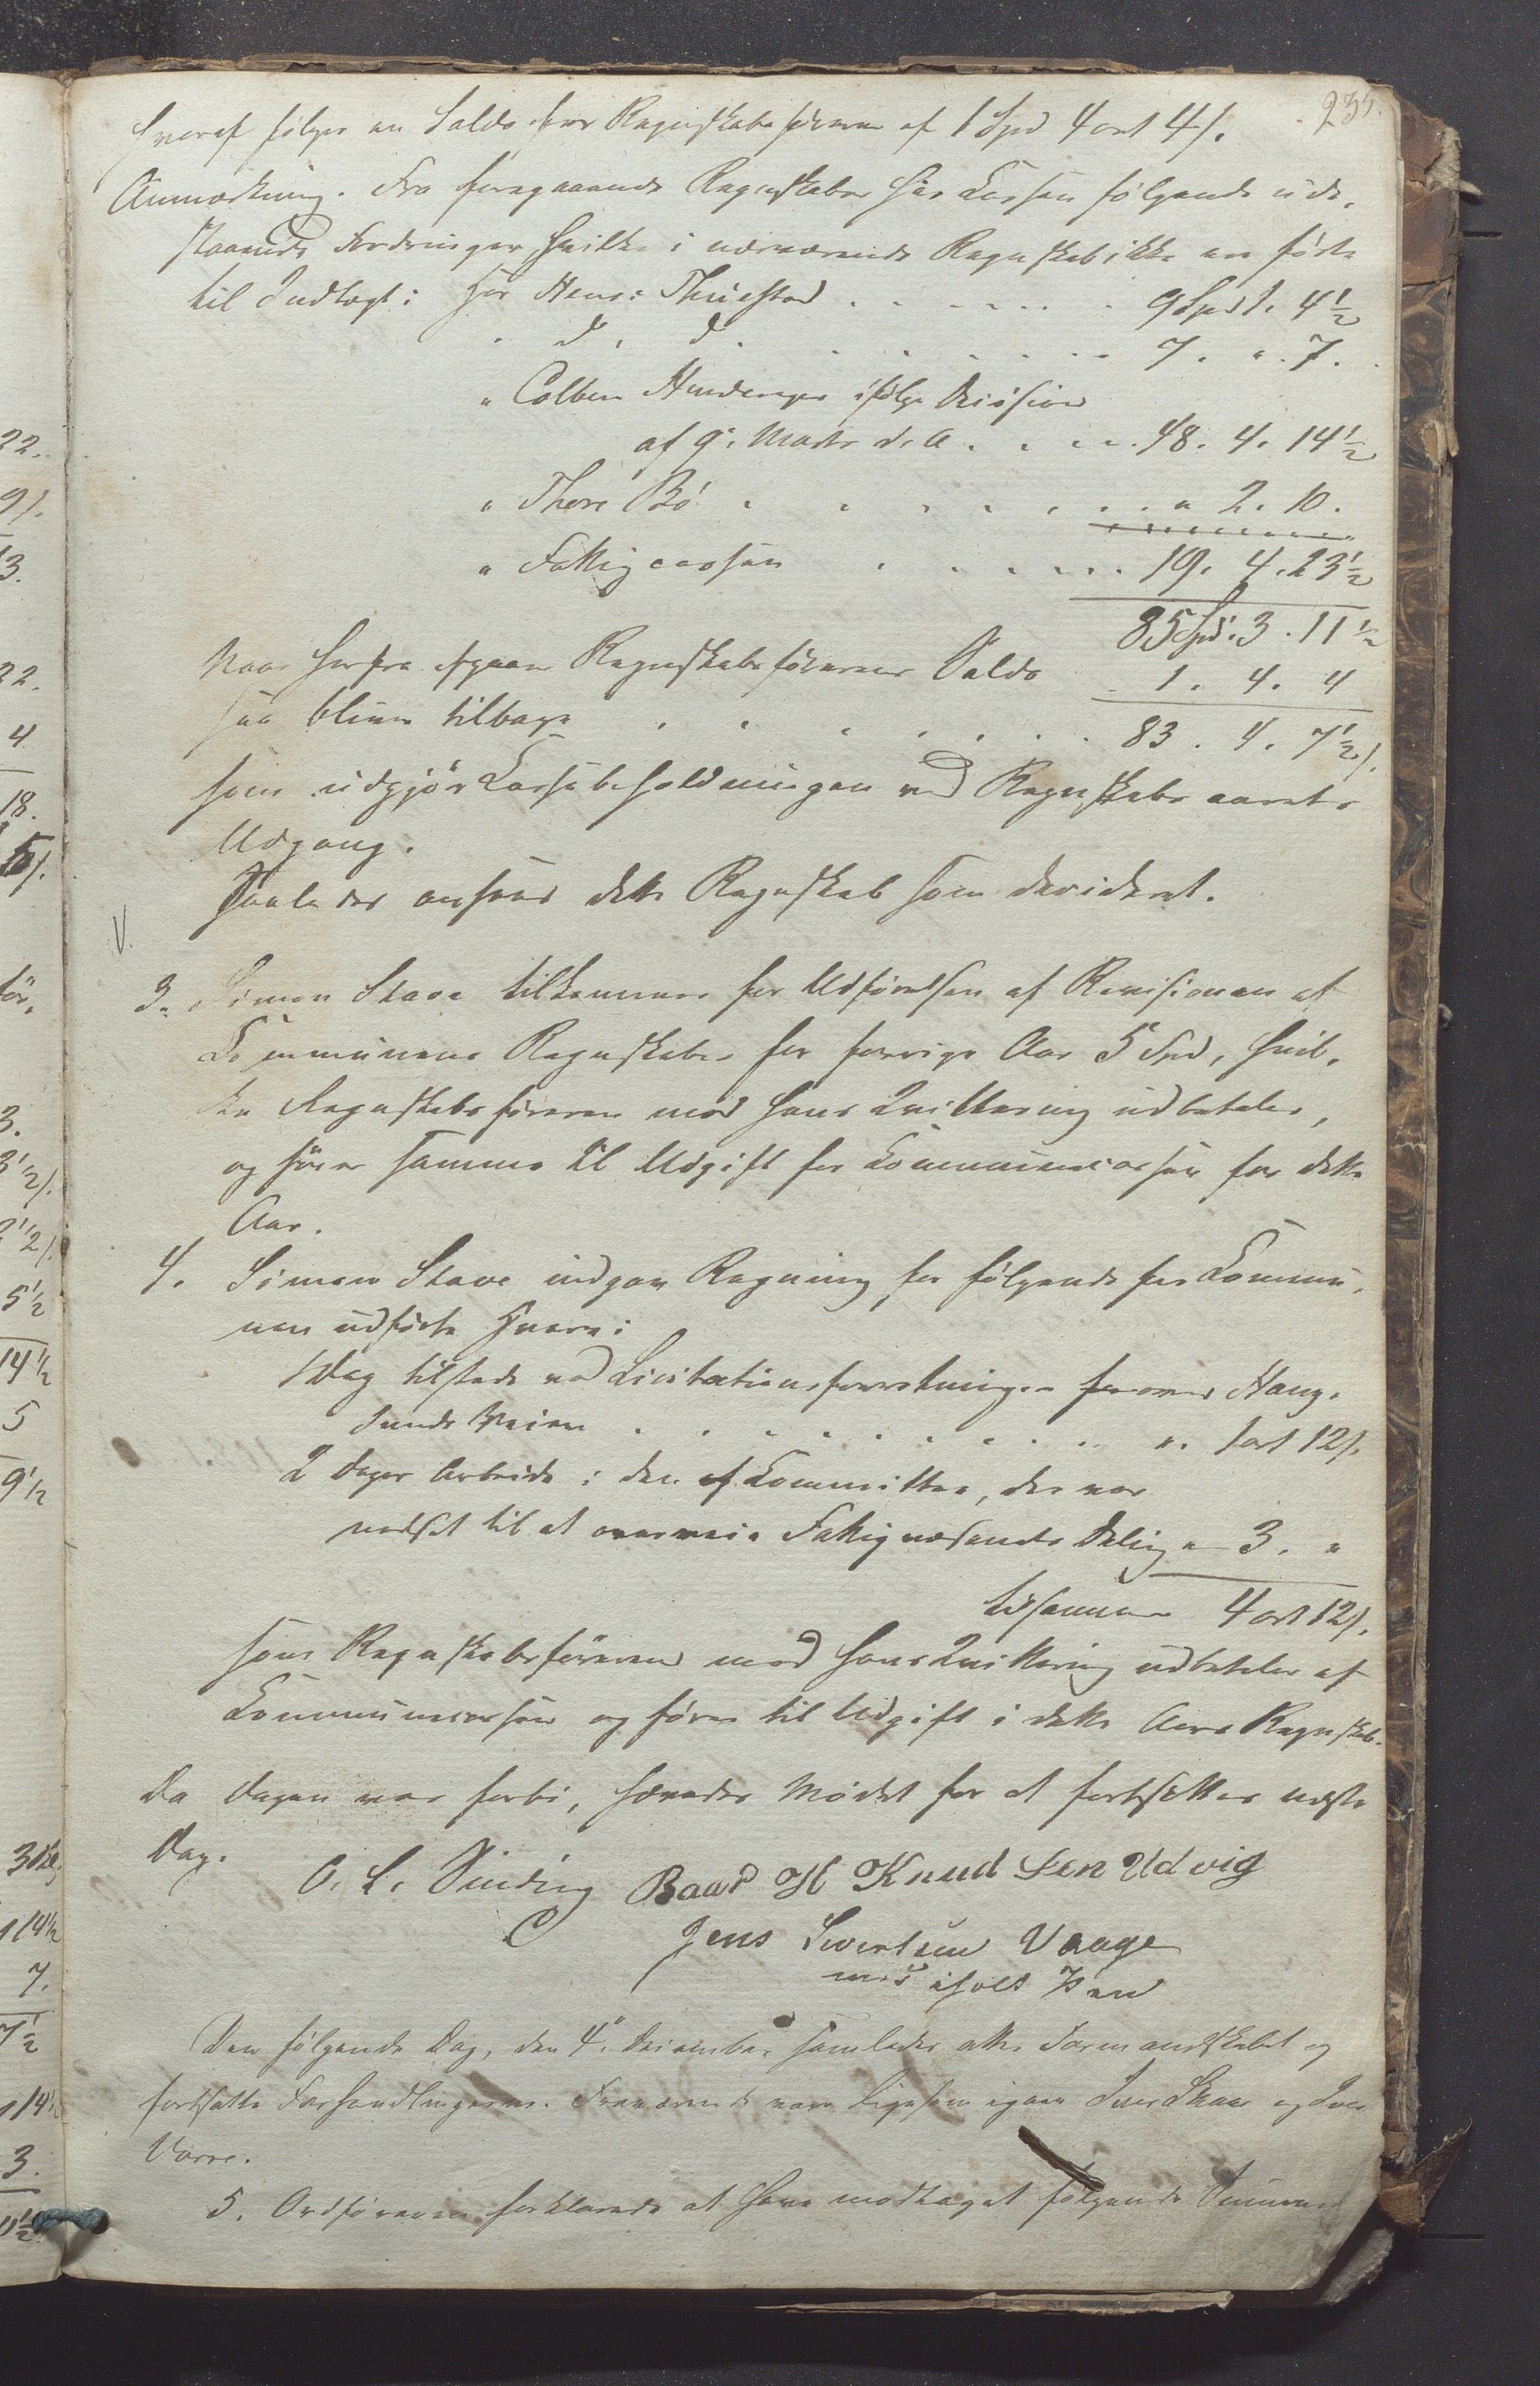 235.
hvoraf følger en Saldo for Regnskabsføreren af 1 Spd 4 ort 4 s.
Anmærkning. Fra foregaaende Regnskaber har Cassen følgende ude-
staaende Fordringer hvilke i nærværende Regnskab ikke ere førte
til Indtægt: hos Hans: Thuestad . . . . . . 9 Spd 1. 4 1/2
" d. d. . . . . . . 7. ". 7.
" Colben ifølge Decision
af 9. Marts d. A. . . . . 48. 4. 14 1/2
" Thore Bø . . . . . . " 2. 10.
" Fattigcassen . . . . . . 19. 4. 23 1/2
85 Spd. 3. 11 1/2
Naar herfra afgaaer Regnskabsførerens Saldo 1. 4. 4
saa bliver tilbage . . . . . . . 83. 4. 7 1/2 s.
som udgjør Cassebeholdningen ved Regnskabsaarets
Udgang.
Saaledes ansees dette Regnskab som decideret.
V.
3. Simon Stave tilkommer for Udførelsen af Revisionen af
Communens Regnskaber for forrige Aar 5 Spd, hvil-
ke Regnskabsføreren mod hans Qvittering udbetaler,
og fører samme til Udgift for Communecassen for dette
Aar.
4. Simon Stave indgav Regning for følgende for Commu-
nen udførte Hverv:
1 Dag tilstede ved Licitationsforretningen Haug-
sunds Veien . . . . . . . . . ". 1 ort 12 s.
2 Dages Arbeide i den af Committee, der var
nedsat til at overveie Fattigvæsenets Deling " 3. "
tilsammen 4 ort 12 s.
som Regnskabsføreren mod hans Qvittering udbetaler af
Communecassen og fører til Udgift i dette Aars Regnskab.
Da Dagen var forbi, hævedes Mødet for at fortsættes næste
Dag.
O. L. Sinding Baard H Knudsen Udvig
Jens Sivertsen Vaage
med iholt Pen
Den følgende Dag, den 4. December samledes atter Formandskabet og
fortsatte Forhandlingerne. Fraværende vare ligesom igaar Iver Skaar og Iver
Varre.
5. Ordføreren forklarede at have modtaget følgende Summer